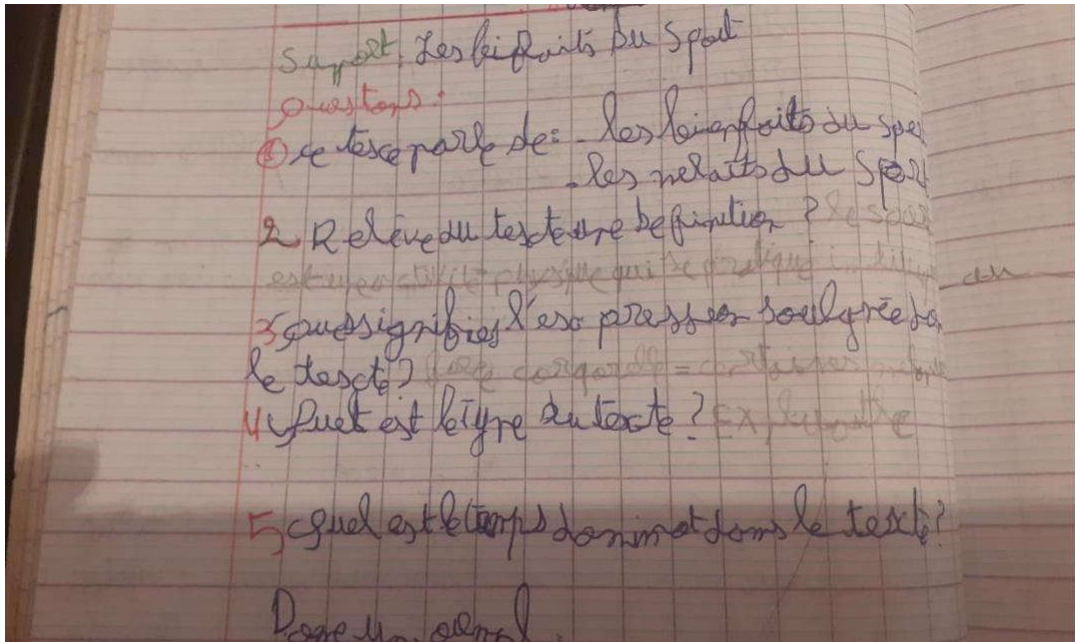 Suport Les bifaits Du Sport
Questons:
① Le texce parle de: - les bienfaits du spo
- les mefaits du Spor
2 Relève du texte une Definition ? le spor
est une activité physique qui se pratique
3 que signifies l'exo presseon soulgnée dan
le texcte?
4 Quel est le Type du texte ? Explicative
5 Quel est le temps dominat dans le texcte?